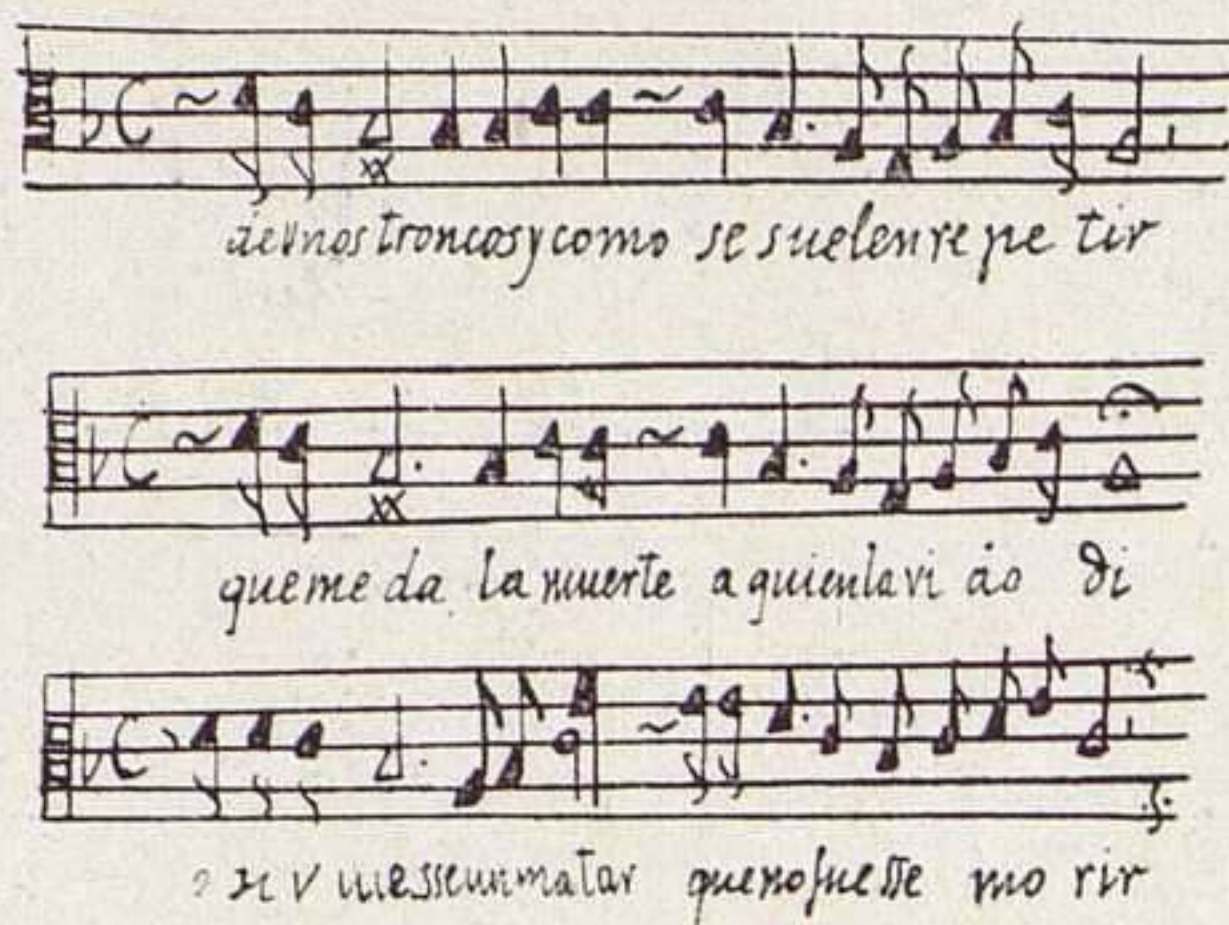 de unos troncos y como se suelen re pe tir
que me da la muerte a quien la vi do di
v uiesse un matar que no fuesse mo rir